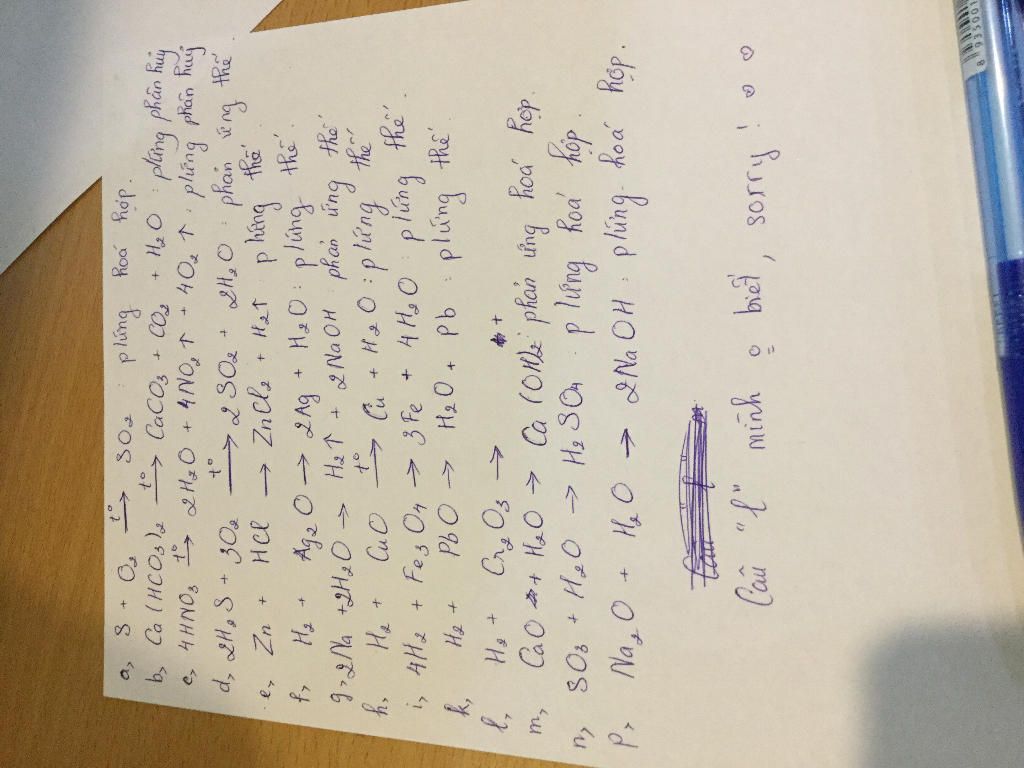 a, S + O₂ →t° SO₂ : p/ứng hoá hợp.
b, Ca(HCO₃)₂ →t° CaCO₃ + CO₂ + H₂O : p/ứng phân huỷ
c, 4HNO₃ →t° 2H₂O + 4NO₂↑ + 4O₂↑ : p/ứng phân huỷ
d, 2H₂S + 3O₂ →t° 2SO₂ + 2H₂O : phản ứng thế
e, Zn + HCl → ZnCl₂ + H₂↑ : p/ứng thế
f, H₂ + Ag₂O → 2Ag + H₂O : p/ứng thế.
g, 2Na + 2H₂O → H₂↑ + 2NaOH : phản ứng thế
h, H₂ + CuO →t° Cu + H₂O : p/ứng thế
i, 4H₂ + Fe₃O₄ → 3Fe + 4H₂O : p/ứng thế.
k, H₂ + PbO → H₂O + Pb : p/ứng thế.
l, H₂ + Cr₂O₃ → +
m, CaO + H₂O → Ca(OH)₂ : phản ứng hoá hợp.
n, SO₃ + H₂O → H₂SO₄ : p/ứng hoá hợp.
p, Na₂O + H₂O → 2NaOH : p/ứng hoá hợp.
Câu "l" mình o biết, sorry!
8 935001